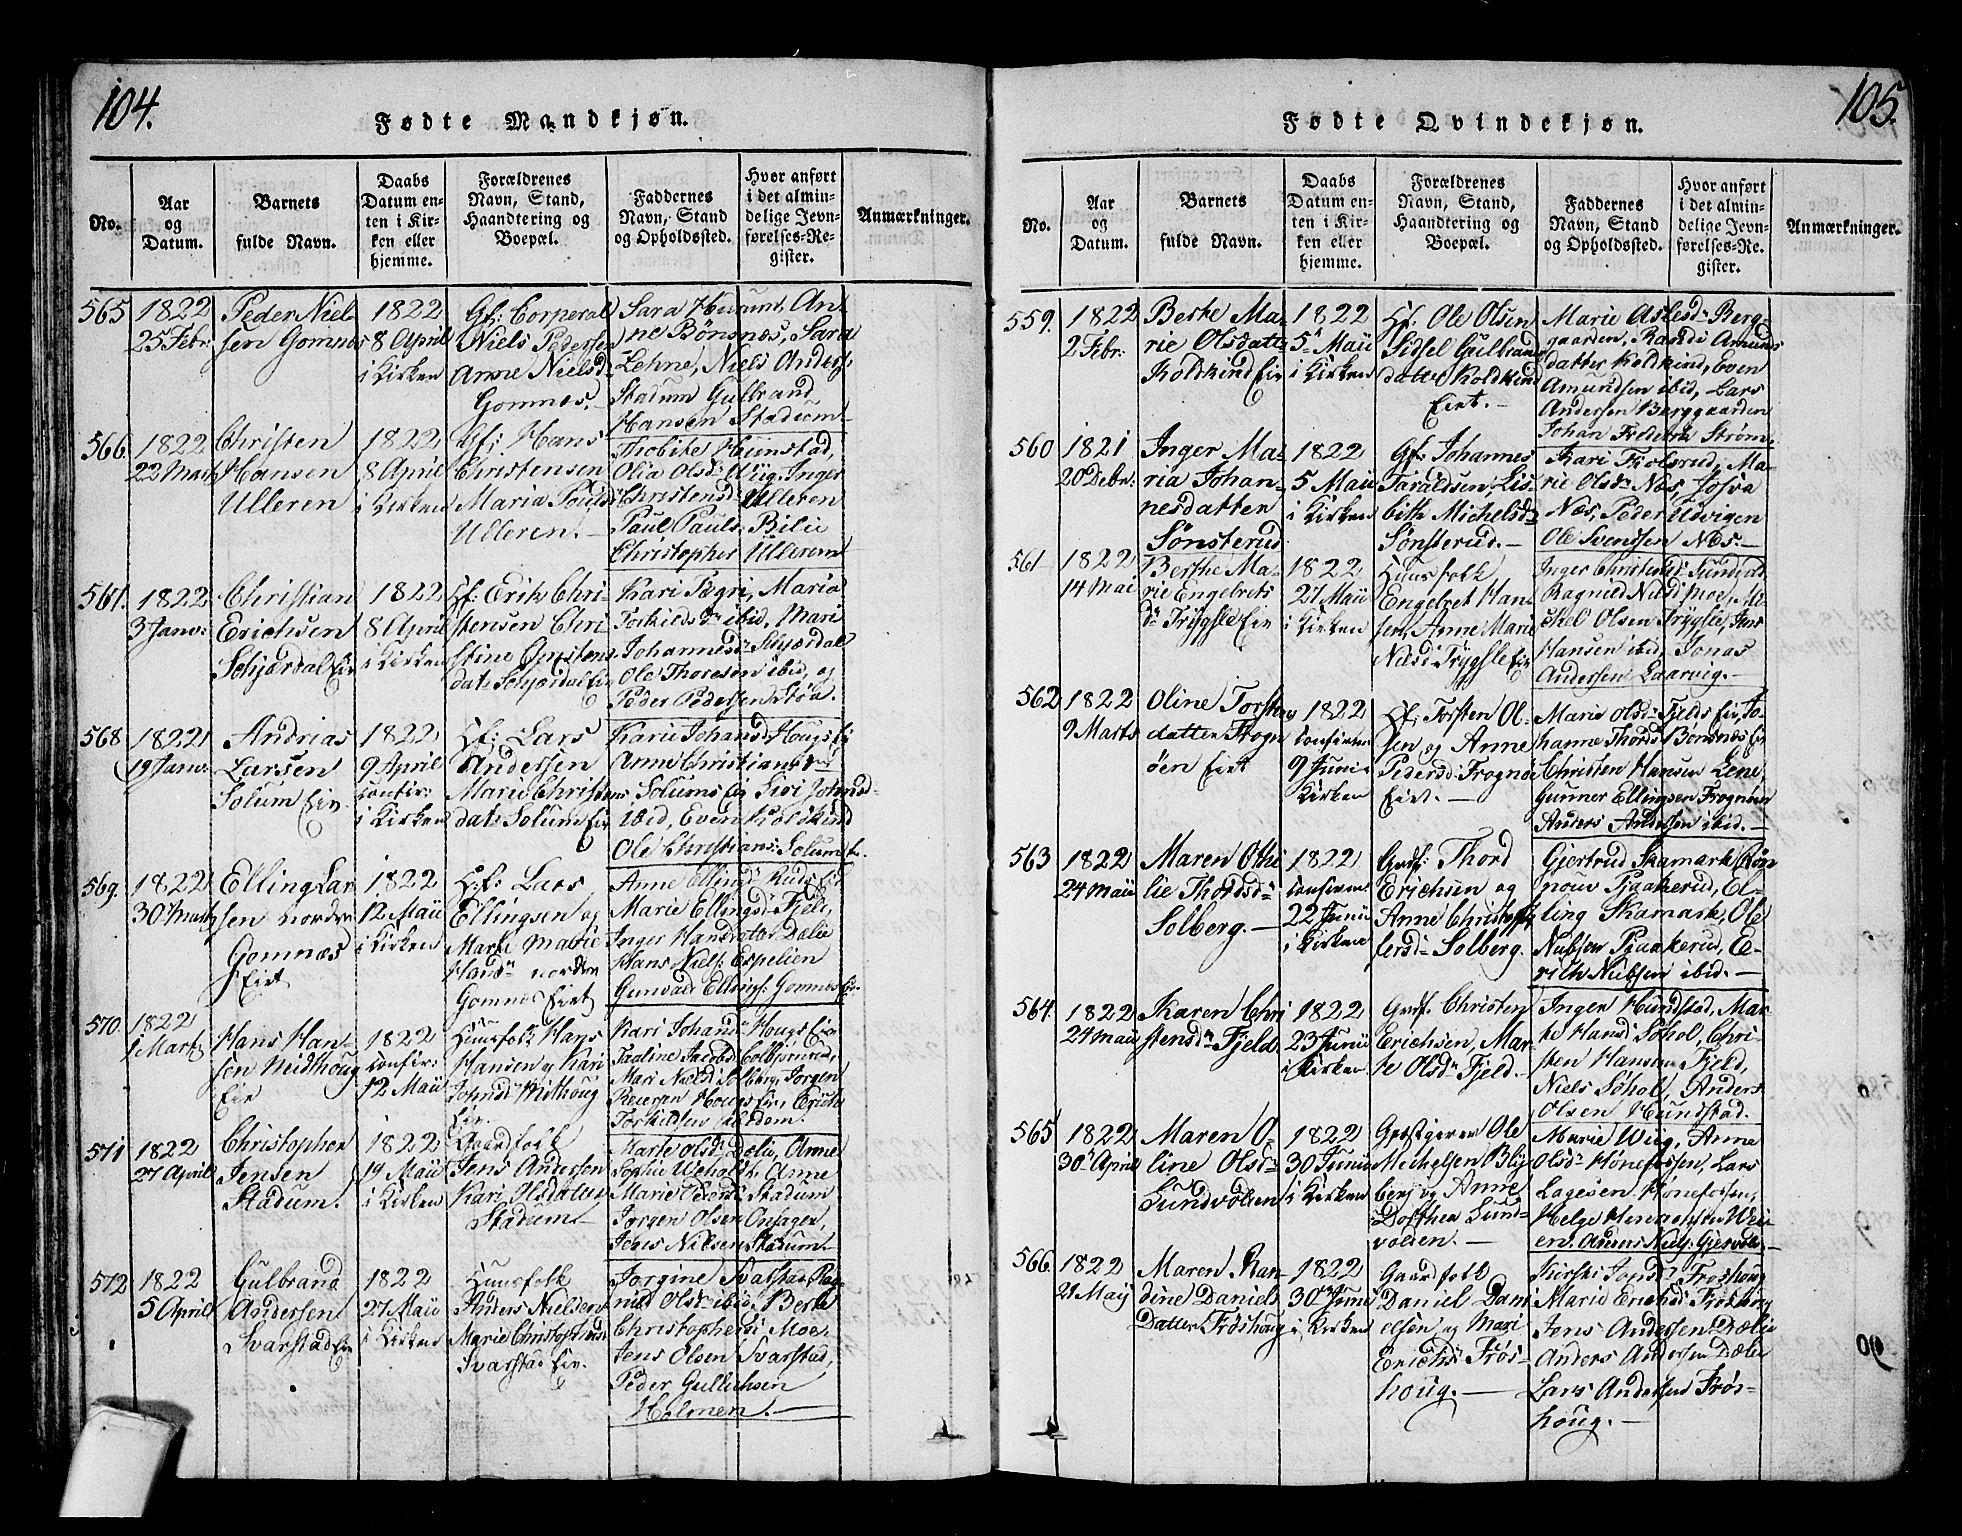 104.
Fødte Mandkjøn.
No.
Aar
og
Datum.
Barnets
fulde Navn.
Daabs
Datum en-
ten i Kir-
ken eller
hjemme.
Forældrenes
Navn, Stand,
Haandtering og
Boepæl.
Faddernes
Navn, Stand
og Opholdssted.
Hvor anført
i det almin-
delige Jevn-
førelses-Re-
gister.
Anmærkninger.
565
1822
25 Febr:
Peder Niel-
sen Gomnes
1822
8 April
i Kirken
Gf: Corperal
Niels Pedersen
Anne Nielsd
Gomnes.
Sara Hurum, An-
ne Bønsnæs, Sara
Lehne, Niels Anders:
Stadum Gulbrand
Hansen Stadium
566.
1822
22 Marts
Christen
Hansen
Ulleren
1822
8 April
i Kirken
Gf: Hans
Christensen
Maria Pouls
Ulleren.
Hunstad,
Olia Olsd: Wiig, Inger
Christensd: Ulleren
Paul Pauls: Bilie
Christopher Ulleren
567.
1822
3 Janv:
Christian
Erichsen
Schjærdal Eir
1822
8 April
i Kirken
Hf: Erik Chri-
stensen Chri-
stine
dat: Schjærdal Eir
Kari Fægri, Maria
Torkildsdr ibid, Mari
Johannesd: Skjærdal
Ole Thoresen ibid, og
Peder Pedersen Støa.
568
1822
19 Janv:
Andrias
Larsen
Solum Eir.
1822
9 April
confir:
i Kirken
Hf: Lars
Andersen
Marie Christians
dat: Solum Eir
Karie Johansd Hougs Ei
Anne Christians
Solums Ei Siri Johnsd
ibid, Even Koldkind
Ole Christians: Solum
569.
1822
30 Marts
Elling Lar
sen nordre
Gomnæs
Eiet
1822
12 Maii
i Kirken
Hf: Lars
Ellingsen og
Marte Marie
Hansdr nordre
Gomnes Eiet
Anne Ellingsd Ruds Ei
Marie Ellingsd: Fjeld,
Inger Hansdatter Dælie
Hans Niels: Espelien
Gunvald Ellings: Gomnes Ei
570.
1822
1 Marts
Hans Han-
sen Midthoug
Eie
1822
confir:
12 Maii
Huusfolk Hans
Hansen og Kari
Johnsd: Mitthoug
Eie.
Kari Johansd Hougs Eie
Pauline Jacobsd Colbjørnrud,
Mari Nielsd: Solberg, Jørgen
Reiersen Hougs Eie,
Torkildsen
571
1822
27 April
Christopher
Jensen
Stadum.
1822
19 Maii
i Kirken
Gaardfolk
Jens Andersen
Kari Olsdatter
Stadum
Marte Olsd: Dælie, Anne
Sophie Anne
Marie Stadum
Jørgen Olsen Onsager,
Jens Nilsen Stadum
572
1822
5 April
Gulbrand
Andersen
Svarstad Eie
1822
27 Maii
i Kirken
Huusfolk
Anders Nielsen
Marie Christophersd
Svarstad Eie.
Jørgine Svarstad, Rag-
nild Olsd: ibid, Berte
Christophersd: Moe,
Jens Olsen Svarstad,
Peder Gullichsen
Holmen.
105.
Fødte Qvindekjøn.
No.
Aar
og
Datum.
Barnets
fulde Navn.
Daabs
Datum en-
ten i Kir-
ken eller
hjemme.
Forældrenes
Navn, Stand,
Haandtering og
Boepæl.
Faddernes
Navn, Stand
og Opholdssted.
Hvor anført
i det almin-
delige Jevn-
førelses-Re-
gister.
Anmærkninger.
559.
1822
2 Febr:
Berte Ma-
rie Olsdatt:
Koldkind Eie
1822
5 Maii
i Kirken
Hf. Ole Olsen
Sidsel Gulbrands
datter Koldkind
Eiet.
Marie Aslesdr Berg-
gaarden, Randi Amunds
datter Koldkind, Even
Amundsen ibid, Lars
Andersen Berggaarden
Johan Fredrik Strøm.
560
1821
20 Debr:
Inger Ma-
ria Johan-
nesdatter
Sønsterud
1822
5 Maii
i Kirken
Gf: Johannes
Taraldsen, Lis-
beth Michelsd
Sønsterud.
Kari Fiolsrud, Ma-
rie Olsdr Næs, Josva
Næs, Peder Udvigen
Ole Svendsen Næs.
561
1822
14 Mai
Berthe Ma-
rie Engelbrets
dr Trygsle Eie
1822
27 Maii
i Kirken
Huusfolk
Engelbret Han-
sen, Anne Marie
Nilsd: Trygsle Eie
Inger Christensd: Sundvol
Ragnild Nilsd: Moe, Mi-
kel Olsen Trygsle,
Hansen ibid, Jonas
Andersen Laarvig.
562
1822
9 Marts
Oline Torstens
datter Frogn
øen Eiet
1822
confirm
9 Juni
Kirken
Hf: Torsten Ol-
sen og Anne
Pedersd: Frognø
Eiet.
Marie Olsdr Fjelds Eie, Jo-
hanne Thords Bønsnæs Eie
Christen Hansen Lene,
Gunner Ellingsen Frognøen
Anders Andersen ibid.
563
1822
24 Maii
Maren Othi
lie Thordsdr
Solberg.
1822
confirm
22 Junii
i Kirken
Grdf: Thord
Erichsen og
Anne Christoph
fersd: Solberg.
Gjertrud Skamark, Røn-
nouv Pjaakerud, El-
ling Skamark, Ole
Nubsen Pjaakerud, E-
rich Nubsen ibid.
564.
1822
24 Maii
Karen Chri
stensdr Fjeld
1822
23 Junii
i Kirken
Grdf. Christen
Erichsen, Mar-
te Olsdr Fjeld.
Inger Hundstad, Mar-
te Hansd: Søhol, Chri-
sten Hansen Fjeld,
Niels Søhol, Anders
Olsen Hundstad.
565
1822
30 April
Maren O-
line Olsdr
Sundvolden
1822
30 Junii
i Kirken
Gjestgever Ole
Michelsen Bly-
berg og Anne
Dorthea Sund-
volden.
Marie Wiig, Anne
Olsdr Hønefossen, Lars
Lagesen Hønefossen,
Helge
Anders Niels: Gjesvold
566.
1822
21 Maij
Maren Ran-
dine Daniels
Datter Frøshoug
1822
30 Juni
i Kirken
Gaardfolk
Daniel Dani
elsen og Mari
Erichs: Frøs-
houg.
Kirsti Frøshoug
Marie Erichsd: Frøshoug
Jens Andersen Dælie
Anders Andersen Dælie
Lars Andersen Frøs-
houg.